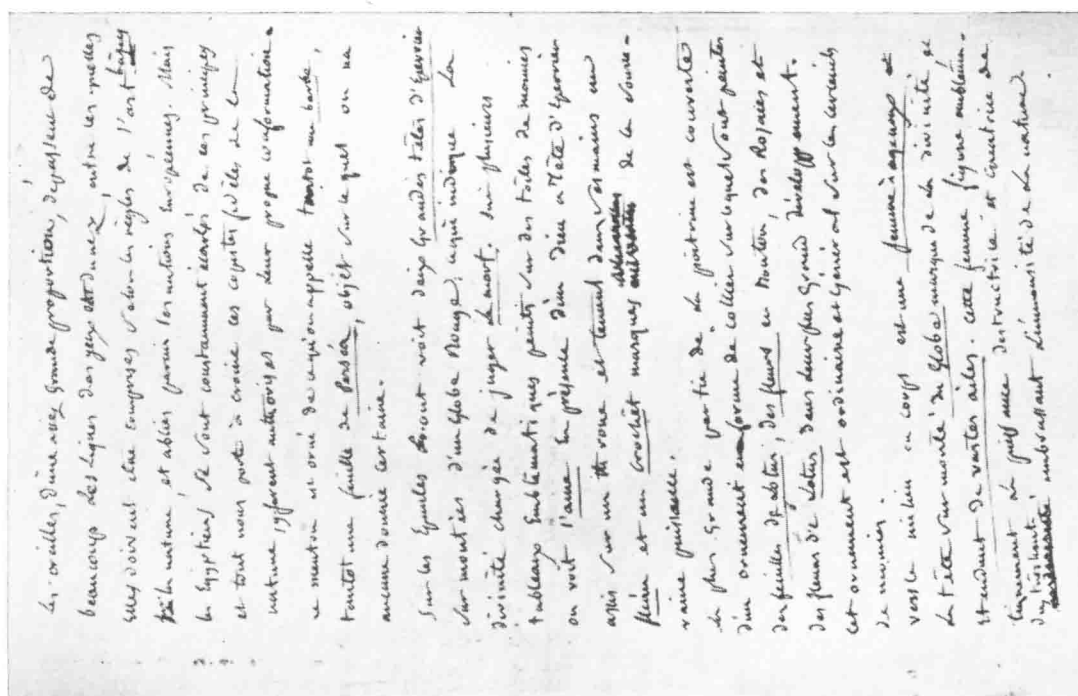 les oreilles, d'une assez Grande proportion, dépassent de
beaucoup les lignes des yeux et du nez, entre les quelles
elles doivent être comprises selon les règles de l'art basées
sur la nature et établies parmi les nations Européennes. Mais
les Egyptiens se sont constamment écartés de ces principes
et tout nous porte à croire ces copistes fidèles de la
nature, y furent autorisés par leur propre conformation.
le menton est orné de ce qu'on appelle tantôt une barbe,
tantôt une feuille de Perséa, objet sur lequel on n'a
aucune donnée certaine.
Sur les Epaules on voit deux Grandes têtes d'Epervier
surmontées d'un Globe Rouge, ce qui indique la
divinité chargée de juger la mort. Sur plusieurs
tableaux Emblématiques peints sur des toiles de momies
on voit l'ame en présence d'un dieu à Tête d'Epervier
assis sur un throne et tenant dans ses mains un
fléau et un Crochet marques de la souve-
raine puissance.
la plus Grande partie de la poitrine est couverte
d'un ornement en forme de collier sur lequel sont peintes
des feuilles, des fleurs en Bouton, des Rosaces et
des fleurs de Lotus dans leur plus Grand développement.
cet ornement est ordinaire et Général sur les cercueils
de momies.
vers le milieu du corps est une femme à genoux et
la tête surmontée du Globe marque de la divinité et
étendant de vastes ailes. cette femme figure embléma-
tiquement la puissance destructrice et Créatrice de
embrassant l'immensité de la nature.